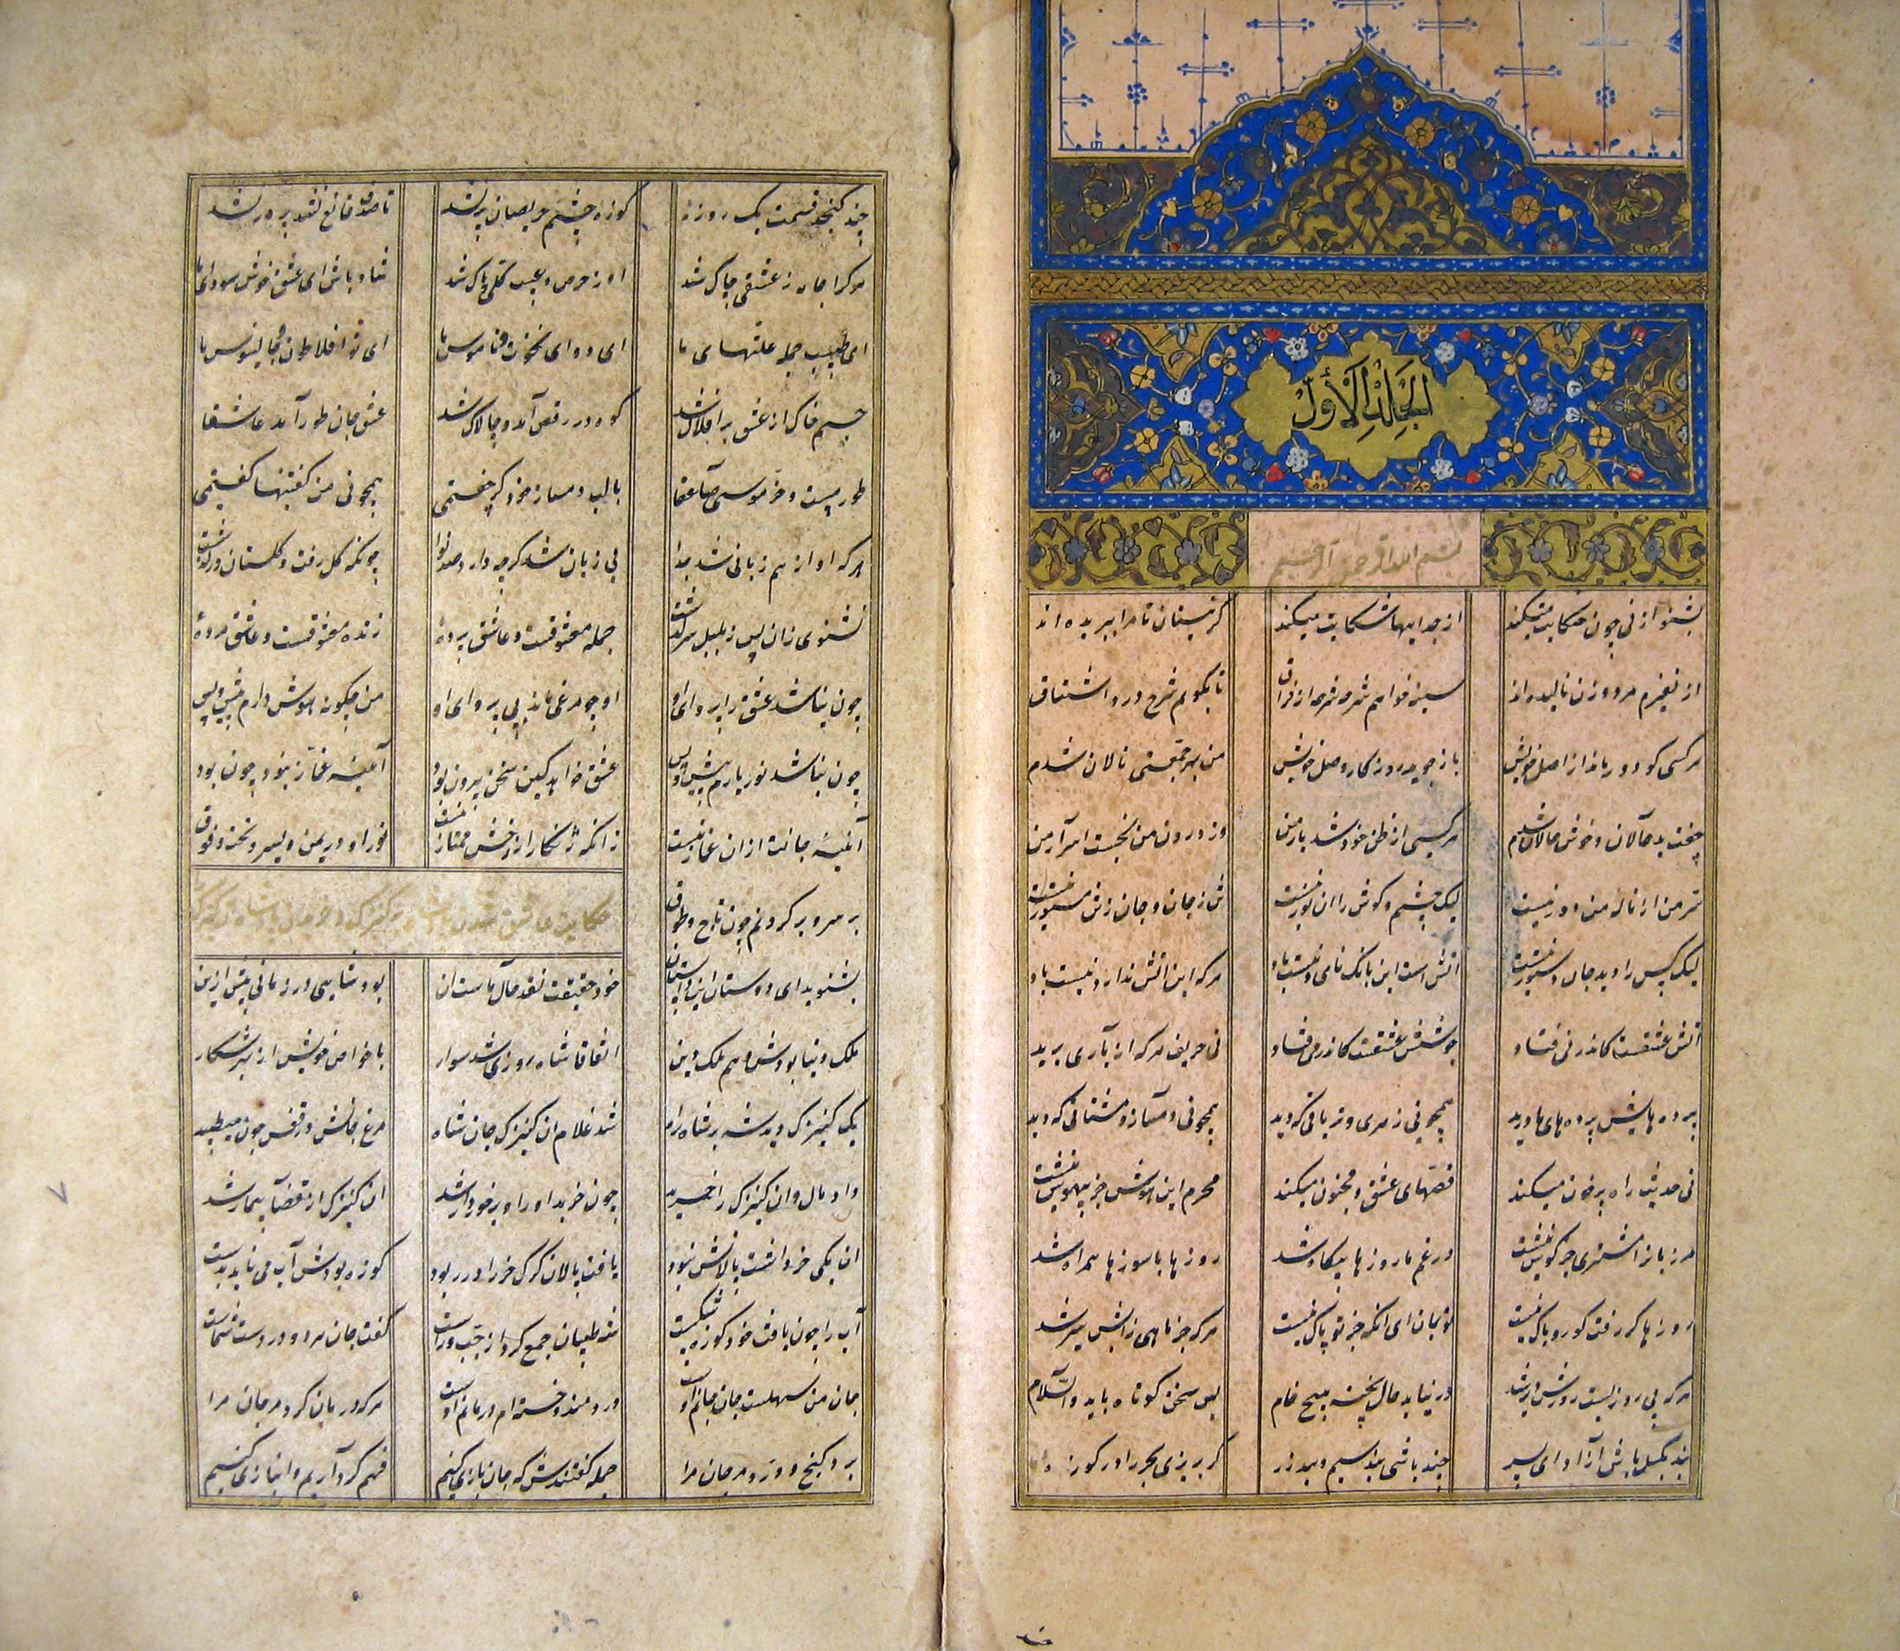 المجلد الأول
بسم الله الرحمن الرحیم
بشنو از نی چون حکایت میکند از جداییها شکایت میکند کز نیستان تا مرا ببریده اند
از نفیرم مرد و زن نالیده اند سینه خواهم شرحه شرحه از فراق تا بگویم شرح درد اشتیاق
هر کسی کو دور ماند از اصل خویش باز جوید روزگار وصل خویش من بهر جمعیتی نالان شدم
جفت بدحالان و خوش حالان شدم هر کسی از ظن خود شد یار من وز درون من نجست اسرار من
سر من از ناله من دور نیست لیک چشم و گوش را ان نور نیست تن ز جان و جان ز تن مستور نیست
لیک کس را دید جان دستور نیست اتش است این بانک نای و نیست باد هر که این اتش ندارد نیست باد
اتش عشقست کاندر نی فتاد جوشش عشقست کاندر می فتاد نی حریف هر که از یاری برید
پرده هایش پرده های ما درید همچو نی زهری و تریاقی که دید همچو نی دمساز و مشتاقی که دید
نی حدیث راه پر خون میکند قصهای عشق مجنون میکند محرم این هوش جز بیهوش نیست
مر زبانرا مشتری جز گوش نیست در غم ما روزها بیگاه شد روزها با سوزها همراه شد
روزها گر رفت گو رو باک نیست تو بمان ای انکه جز تو پاک نیست هر که جز ماهی ز ابش سیر شد
هر که بی روزیست روزش دیر شد در نیابد حال پخته هیچ خام پس سخن کوتاه باید والسلام
بند بگسل باش آزاد ای پسر چند باشی بند سیم و بند زر گر بریزی بحر را در کوزه
چند گنجد قسمت یک روزهٔ کوزه چشم حریصان پر نشد تا صدف قانع نشد پر در نشد
هر کرا جامه ز عشقی چاک شد او ز حرص و عیب کلی پاک شد شاد باش ای عشق خوش سودای ما
ای طبیب جمله علتهای ما ای دوای نخوت و ناموس ما ای تو افلاطون و جالینوس ما
جسم خاک از عشق بر افلاک شد کوه در رقص آمد و چالاک شد عشق جان طور آمد عاشقا
طور مست و خر موسی صاعقا با لب دمساز خود گر جفتمی همچو نی من گفتنیها گفتمی
هر که او از هم زبانی شد جدا بی زبان شد گرچه دارد صد نوا چونکه گل رفت و گلستان درگذشت
نشنوی زان پس ز بلبل سرگذشت جمله معشوقست و عاشق پردهٔ زنده معشوقست و عاشق مردهٔ
چون نباشد عشق را پروای او او چو مرغی ماند بی پر وای او من چگونه هوش دارم پیش و پس
چون نباشد نور یارم پیش و پس عشق خواهد کین سخن بیرون بود آینه غماز نبود چون بود
آینهٔ جانت ازان غماز نیست زانکه ژنگار از رخش ممتاز نیست نور او در یمن و یسر و تحت و فوق
بر سر و بر گردنم چون تاج و طوق
حکایت عاشق شدن پادشاه بر کنیزک
بشنوید ای دوستان این داستان خود حقیقت نقد حال ماست ان بود شاهی در زمانی پیش ازین
ملک دنیا بودش و هم ملک دین اتفاقا شاه روزی شد سوار با خواص خویش از بهر شکار
یک کنیزک دید شه بر شاه راه شد غلام ان کنیزک جان شاه مرغ جانش در قفس چون میطپید
داد مال و ان کنیزک را خرید چون خرید او را و برخوردار شد ان کنیزک از قضا بیمار شد
ان یکی خر داشت پالانش نبود یافت پالان گرگ خر را در ربود کوزه بودش آب می نامد بدست
آب را چون یافت خود کوزه شکست شه طبیبان جمع کرد از چپ و راست گفت جان هر دو در دست شماست
جان من سهلست جان جانم اوست دردمند و خسته ام درمانم اوست هر که درمان کرد مر جان مرا
برد گنج و در و مرجان مرا جمله گفتندش که جان بازی کنیم فهم گرد آریم و انبازی کنیم